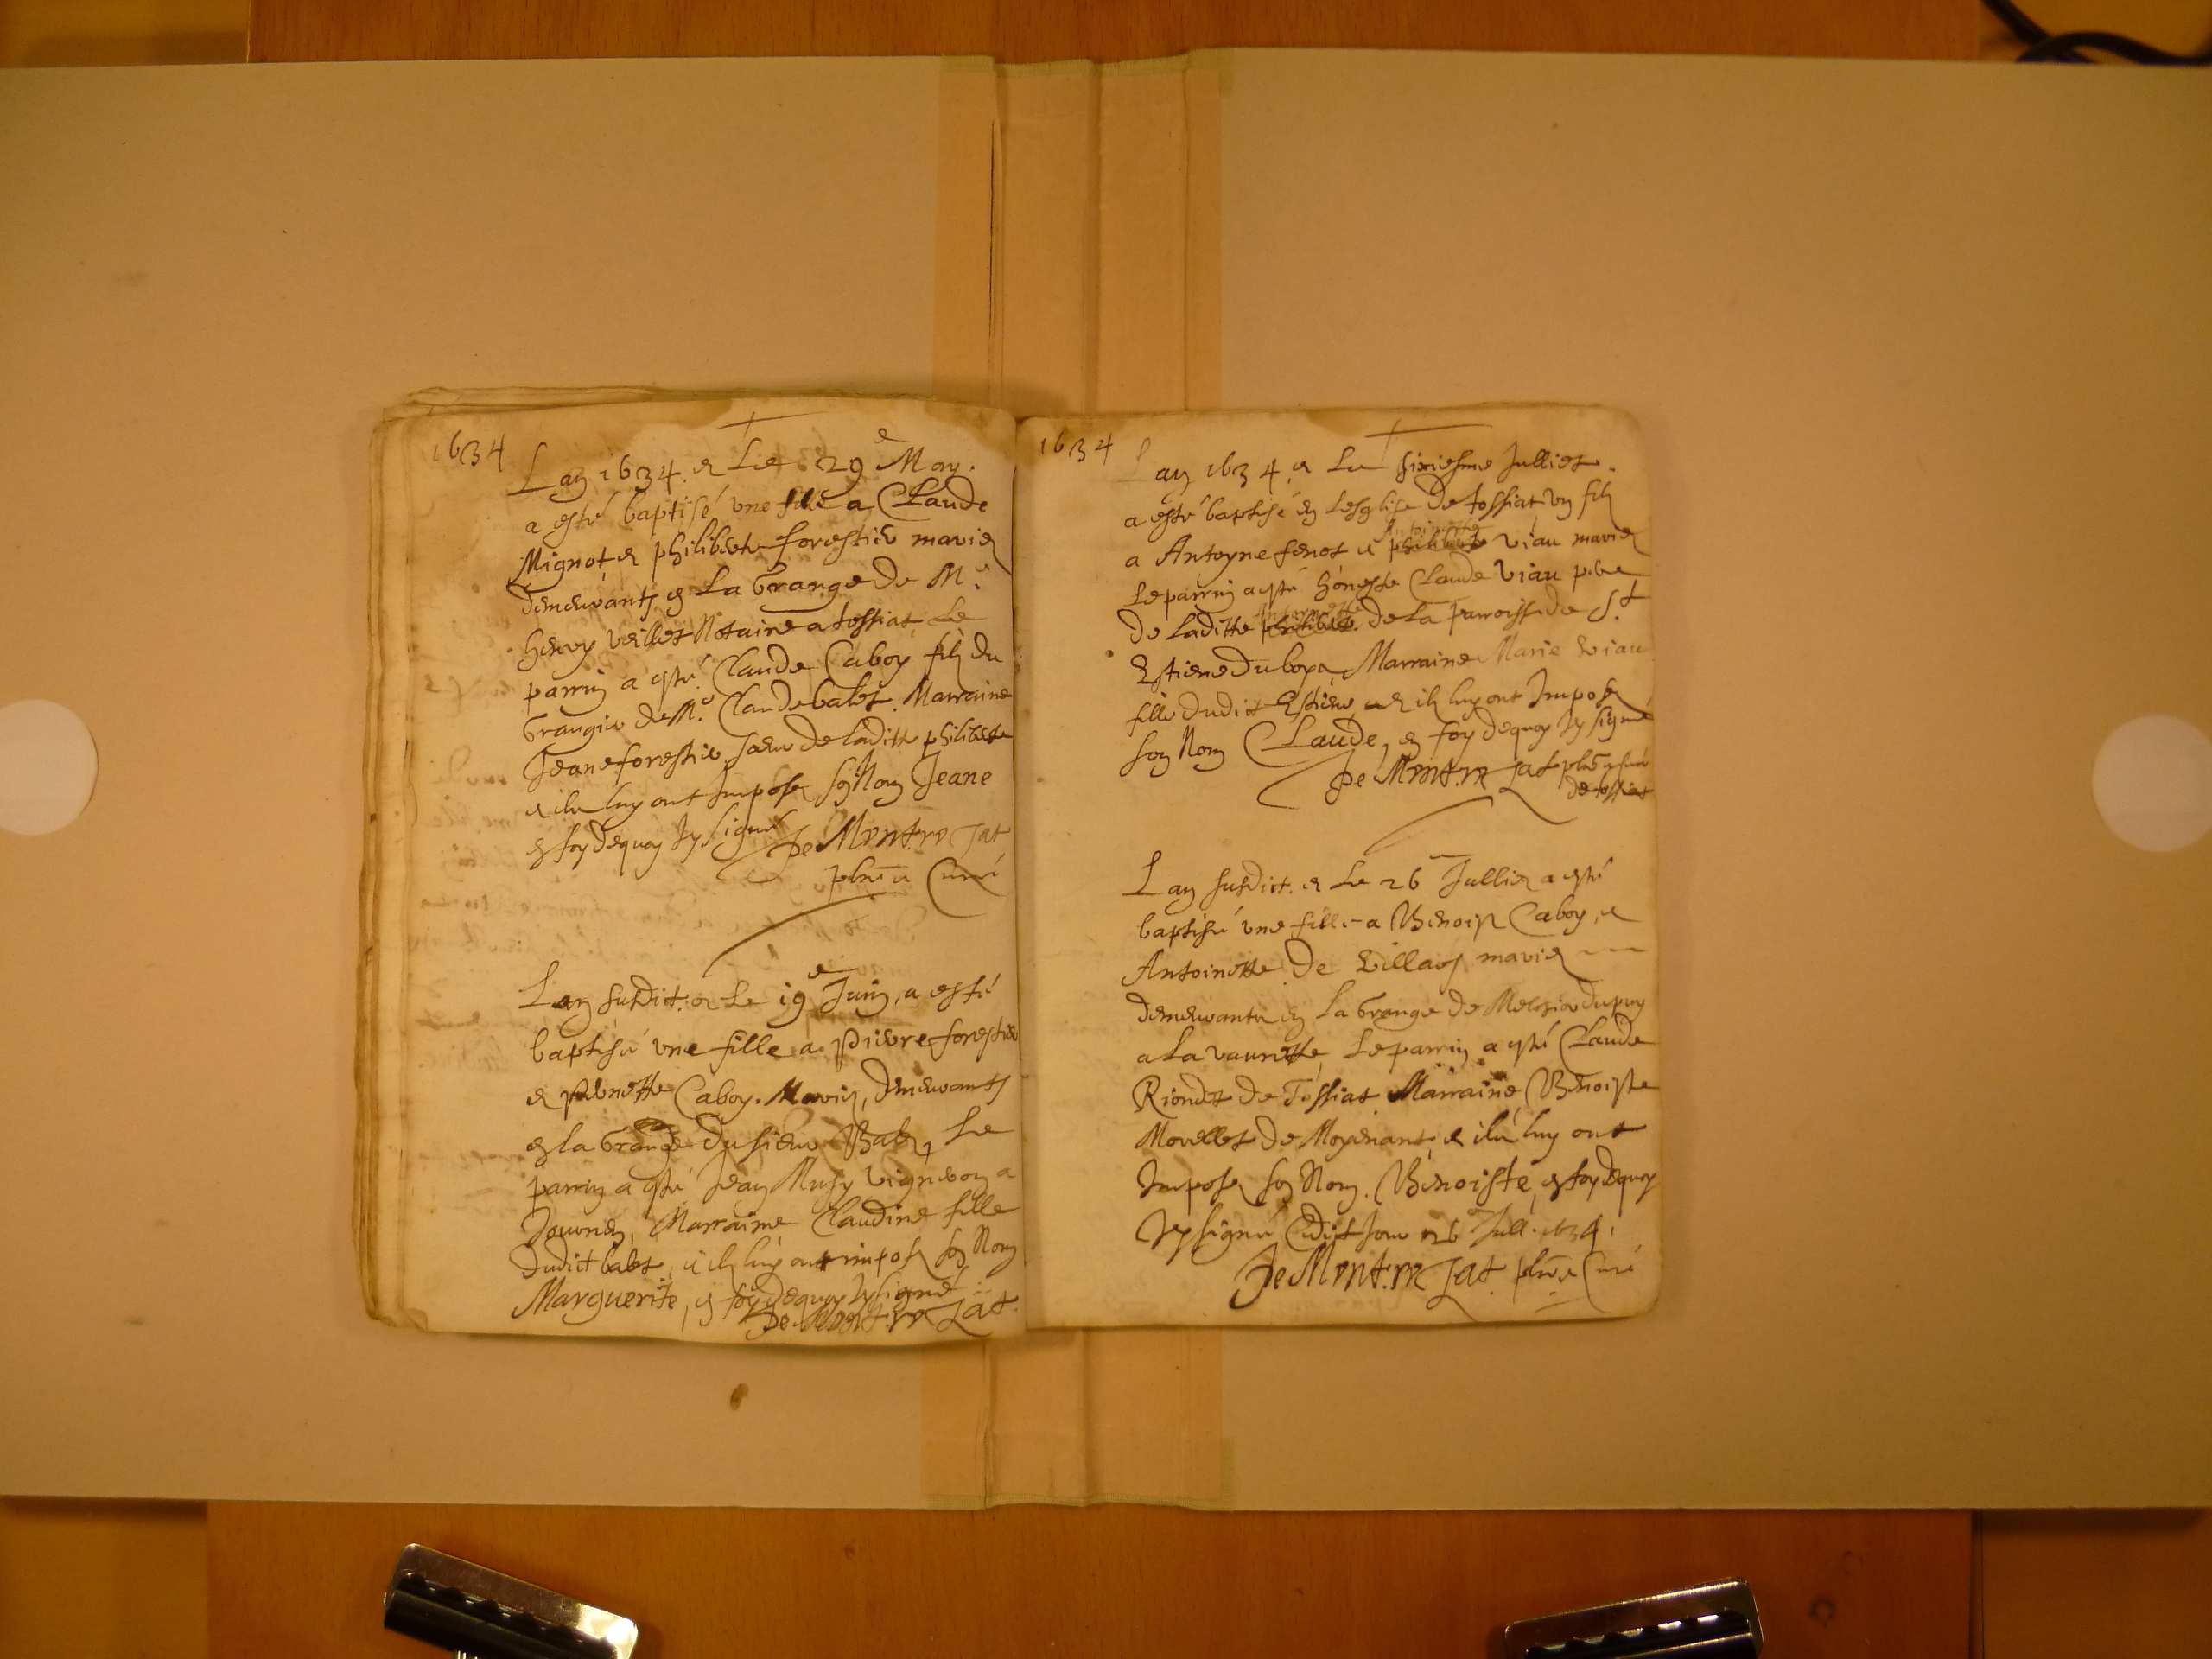 1634
Lan 1634 et Le 29e May.
a esté baptisé une fille a Claude
Mignot et philiberte forestier mariez
demeurants en La Grange de Me
henry veillet Notaire a tossiat Le
parrin a esté Claude Caboy filz du
Grangier de Me Claude balet. Marraine
Jeane forestier soeur de laditte philiberte
et ilz luy ont Imposez son Nom Jeane
en foy dequoy Jy signé De Montrerat
pbre et Curé
Lan susdict et Le 19e Juin, a esté
baptisé une fille a Pierre forestier
et pernette Caboy. Mariez, demeurants
en la Grange du sieur Balet, Le
parrin a esté Jean Musy vigneron a
Journan, Marraine Claudine fille
dudict balet, et ilz luy ont imposez son Nom
Marguerite, en foy dequoy Jy signé
1634
Lan 1634 et Le sixiesme Julliet.
a esté baptisé en Lesglise de tossiat un filz
a Antoyne fenot et philiberte Antoinette viau mariez
Le parrin a esté honeste Claude Viau pere
de laditte philiberte Antoinette de la Parroisse de St
Estiene du boys Marraine Marie Viau
fille dudict Estiene et ilz luy ont Imposez
son Nom Claude, en foy dequoy Jy signé
pbre et curé
de tossiat
Lan susdict et Le 26 Jullier a esté
baptisé une fille a Benoist Caboy, et
Antoinette De Villars mariez
demeurants en La Grange de Melchior dupuy
a La vaurette Le parrin a esté Claude
Riondet de Tossiat Marraine, Benoiste
Morellet de Moyenant, et ilz luy ont
Imposez son Nom. Benoiste, en foy dequoy
Jey signé Cedict Jour 26 Jull. 1634,
pbre et Curé